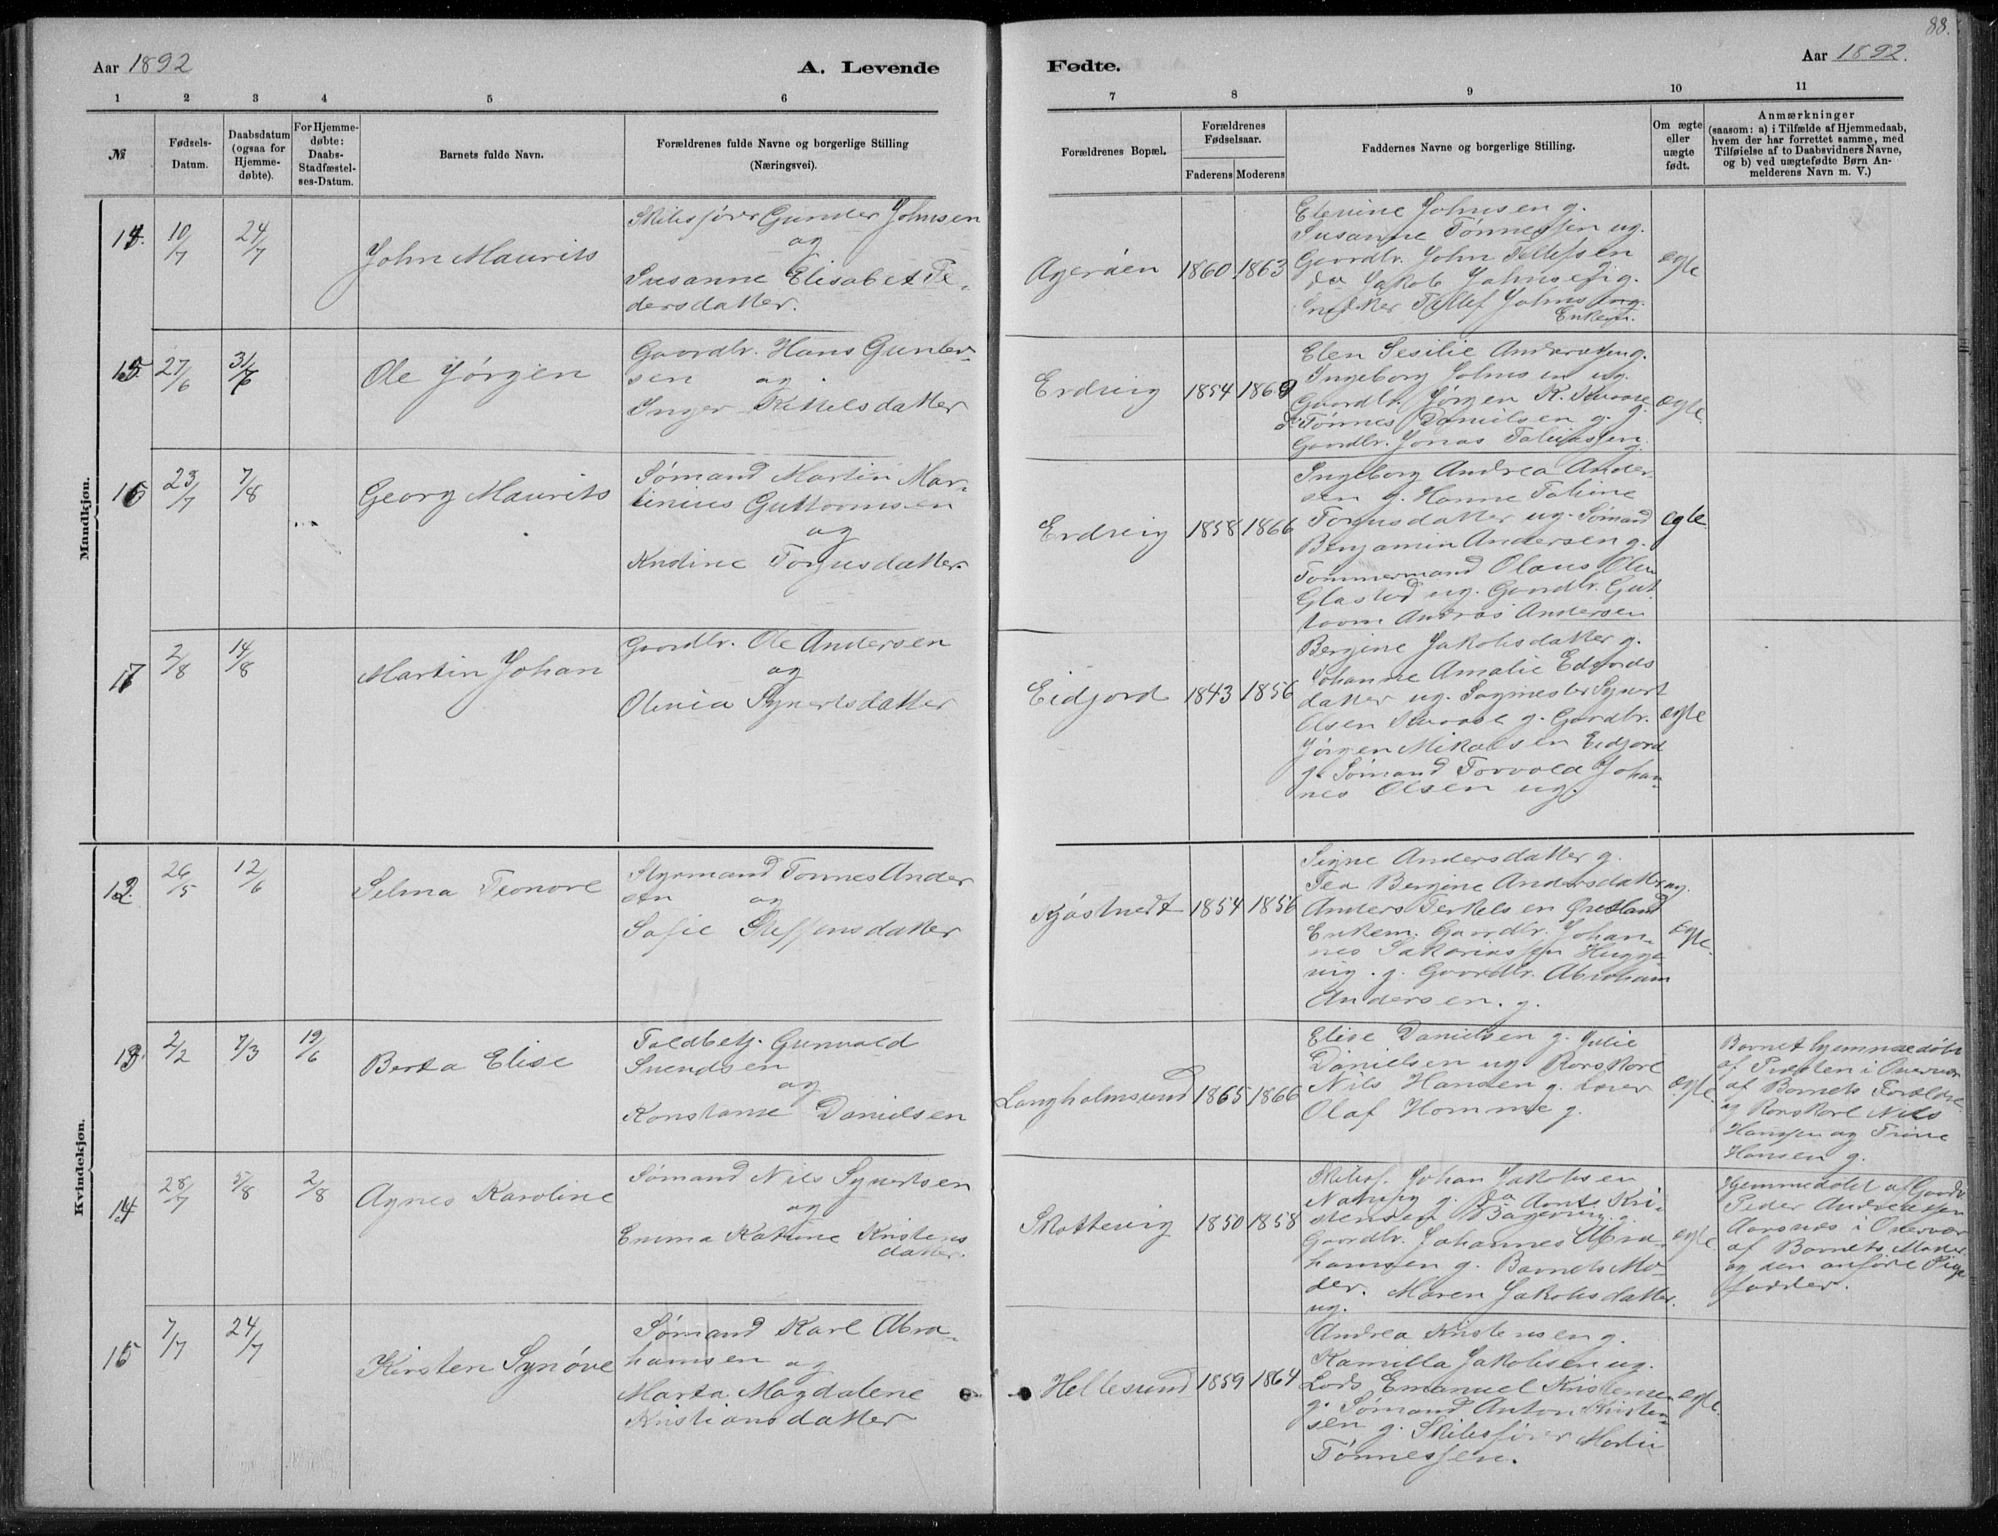 88.
Aar 1892
A. Levende
Fødte.
Aar 1892.
1 2 3 4 5 6
7 8 9 10 11
No
Fødsels-
Datum.
Daabsdatum
(ogsaa for
Hjemme-
døbte).
For Hjemme-
døbte:
Daabs-
Stadfæstel-
ses-Datum.
Barnets fulde Navn.
Forældrenes fulde Navne og borgerlige Stilling
(Næringsvei).
Forældrenes Bopæl.
Forældrenes
Fødselsaar.
Faderens Moderens
Faddernes Navne og borgerlige Stilling.
Om ægte
eller
uægte
født.
Anmærkninger
(saasom: a) i Tilfælde af Hjemmedaab,
hvem der har forrettet samme, med
Tilføielse af to Daabsvidners Navne,
og b) ved uægtefødte Børn An-
melderens Navn m. V.)
Mandkjøn.
14. 10/7 24/7
John Maurits
Skibsfører Gunder Johnsen
og
Susanne Elisabet Pe-
dersdatter.
Agerøen 1860 1863
Elevine Johnsen g.
Susanne Tønnessen ug.
Gaardbr. John Tellefsen
do Jakob Johnsen g.
Snedker Tellef Johnsen
Enkem.
ægte
15. 27/6 31/7
Ole Jørgen
Gaardbr. Hans Gunder-
sen og
Inger Kittelsdatter
Erdvig 1854 1869
Elen Sesilie Andersen g.
Ingeborg Johnsen ug.
Gaardbr. Jørgen K. Skaare g.
do Tønnes Danielsen g.
Gaardbr. Jonas Tobiassen g.
ægte
16 23/7 7/8
Georg Maurits
Sømand Martin Mar-
tinius Guttormsen
og
Kristine Torjusdatter.
Erdvig 1858 1866
Ingeborg Andrea Ander-
sen g. Hanne Tobine
Torjusdatter ug. Sømand
Benjamin Andersen g.
Tømmermand Olaus Olsen
Glastad ug. Gaardbr. Gut-
torm Andreas Andersen
ægte.
17 2/8 14/8
Martin Johan
Gaardbr. Ole Andersen
og
Olivia Syvertsdatter
Eidjord 1843 1856
Bergine Jakobsdatter g.
Johanne Amalie Edjords
datter ug. Sagmester Syvert
Olsen Skaare g. Gaardbr.
Jørgen Mikalsen Eidjord
g. Sømand Torvald Johan-
nes Olsen ug.
ægte
Kvindekjøn.
12. 26/5 12/6
Selma Teonore
Styrmand Tønnes Ander
sen og
Sofie Steffensdatter
Kjøstvedt 1854 1856
Signe Andersdatter g.
Tea Bergine Andersdatter ug.
Anders Terkelsen Østland
Enkem. Gaardbr. Johan-
nes Sakariassen Hugge-
vig. g. Gaardbr. Abraham
Andersen. g.
ægte.
13. 2/2 7/3 19/6
Berta Elise
Toldbetj. Gunvald
Svendsen
og
Konstanse Danielsen
Langholmsund 1865 1866
Elise Danielsen g. Julie
Danielsen ug. Rorskarl
Nils Hansen g. Lærer
Olaf Homme g.
ægte.
Barnet hjemmedøbt
af Præsten i Nærvær
af Barnets Forældre
og Rorskarl Nils
Hansen og Trine
Hansen g.
14 28/7 5/8 2/8
Agnes Karoline
Sømand Nils Syvertsen
og
Emma Katrine Kristens
datter.
Skottevig 1850 1858
Skibsf. Johan Jakobsen
g. do Arnt Kri-
stensen
Gaardbr. Johannes Abra-
hamsen g. Barnets Mo-
der. Maren Jakobsdatter
ug.
ægte.
Hjemmedøbt af Gaardbr.
Peder Andreassen
Aarsnes i Nærvær
af Barnets Moder
og den anførte Pige
fadder.
15 7/7 24/7
Kirsten Synøve
Sømand Karl Abra-
hamsen og
Marta Magdalene
Kristiansdatter
Hellesund 1859 1864
Andrea Kristensen g.
Kamilla Jakobsen ug.
Lods Emanuel Kristensen
g. Sømand Anton Kristen-
sen g. Skibsfører Martin
Tønnessen.
ægte.